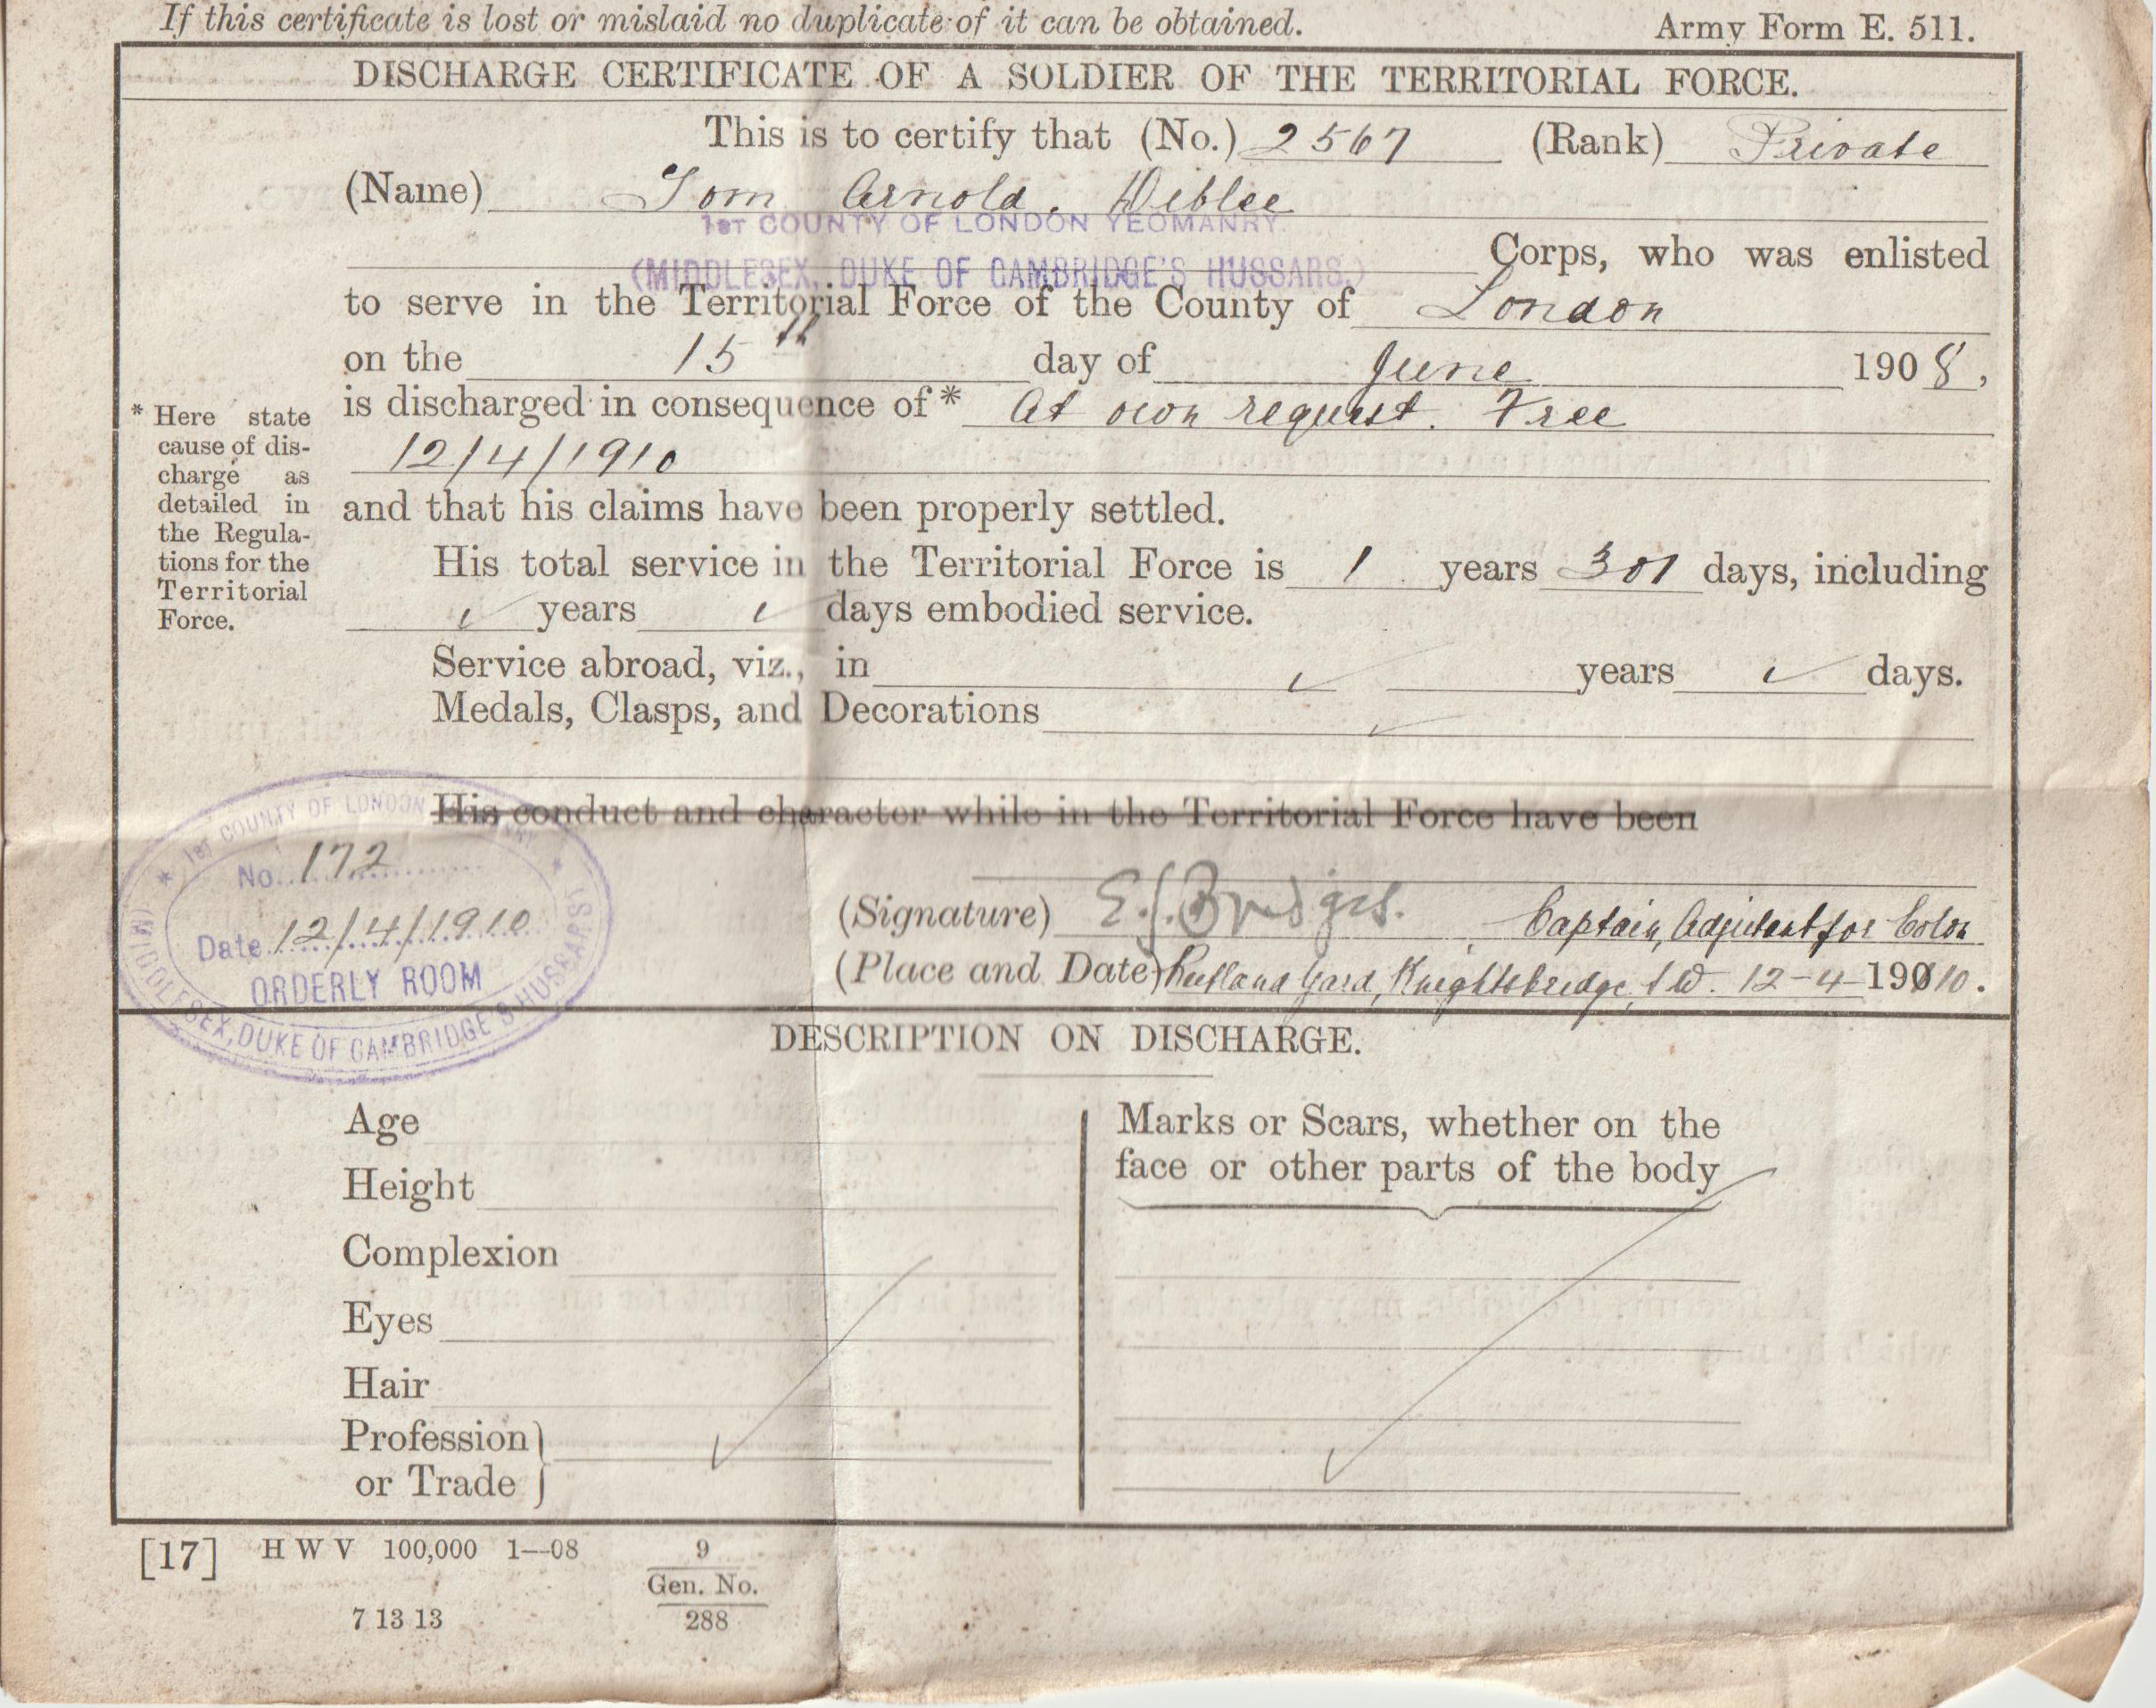 If this certificate is lost or mislaid no duplicate of it can be obtained. Army Form E. 511.
DISCHARGE CERTIFICATE OF A SOLDIER OF THE TERRITORIAL FORCE.
This is to certify that (No.) 2567 (Rank) Private
(Name) Tom Arnold
1ST COUNTY OF LONDON YEOMANRY.
(MIDDLESEX, DUKE OF CAMBRIDGE'S HUSSARS.)
Corps, who was enlisted
to serve in the Territorial Force of the County of London
on the 15th day of June 1908,
is discharged in consequence of* At own request. Free
12/4/1910
* Here state
cause of dis-
charge as
detailed in
the Regula-
tions for the
Territorial
Force.
and that his claims have been properly settled.
His total service in the Territorial Force is 1 years 301 days, including
years days embodied service.
Service abroad, viz., in years days.
Medals, Clasps, and Decorations
His conduct and character while in the Territorial Force have been
1ST COUNTY OF LONDON YEOMANRY
No. 172
Date 12/4/1910
ORDERLY ROOM
(MIDDLESEX, DUKE OF CAMBRIDGE'S HUSSARS)
(Signature) E.S. Bridges. Captain, Adjutant for Colon
(Place and Date) Rutland Yard, Knightsbridge, S.W. 12-4-1910.
DESCRIPTION ON DISCHARGE.
Age
Height
Complexion
Eyes
Hair
Profession
or Trade
Marks or Scars, whether on the
face or other parts of the body
[17] H W V 100,000 1—08
7 13 13
9
Gen. No.
288